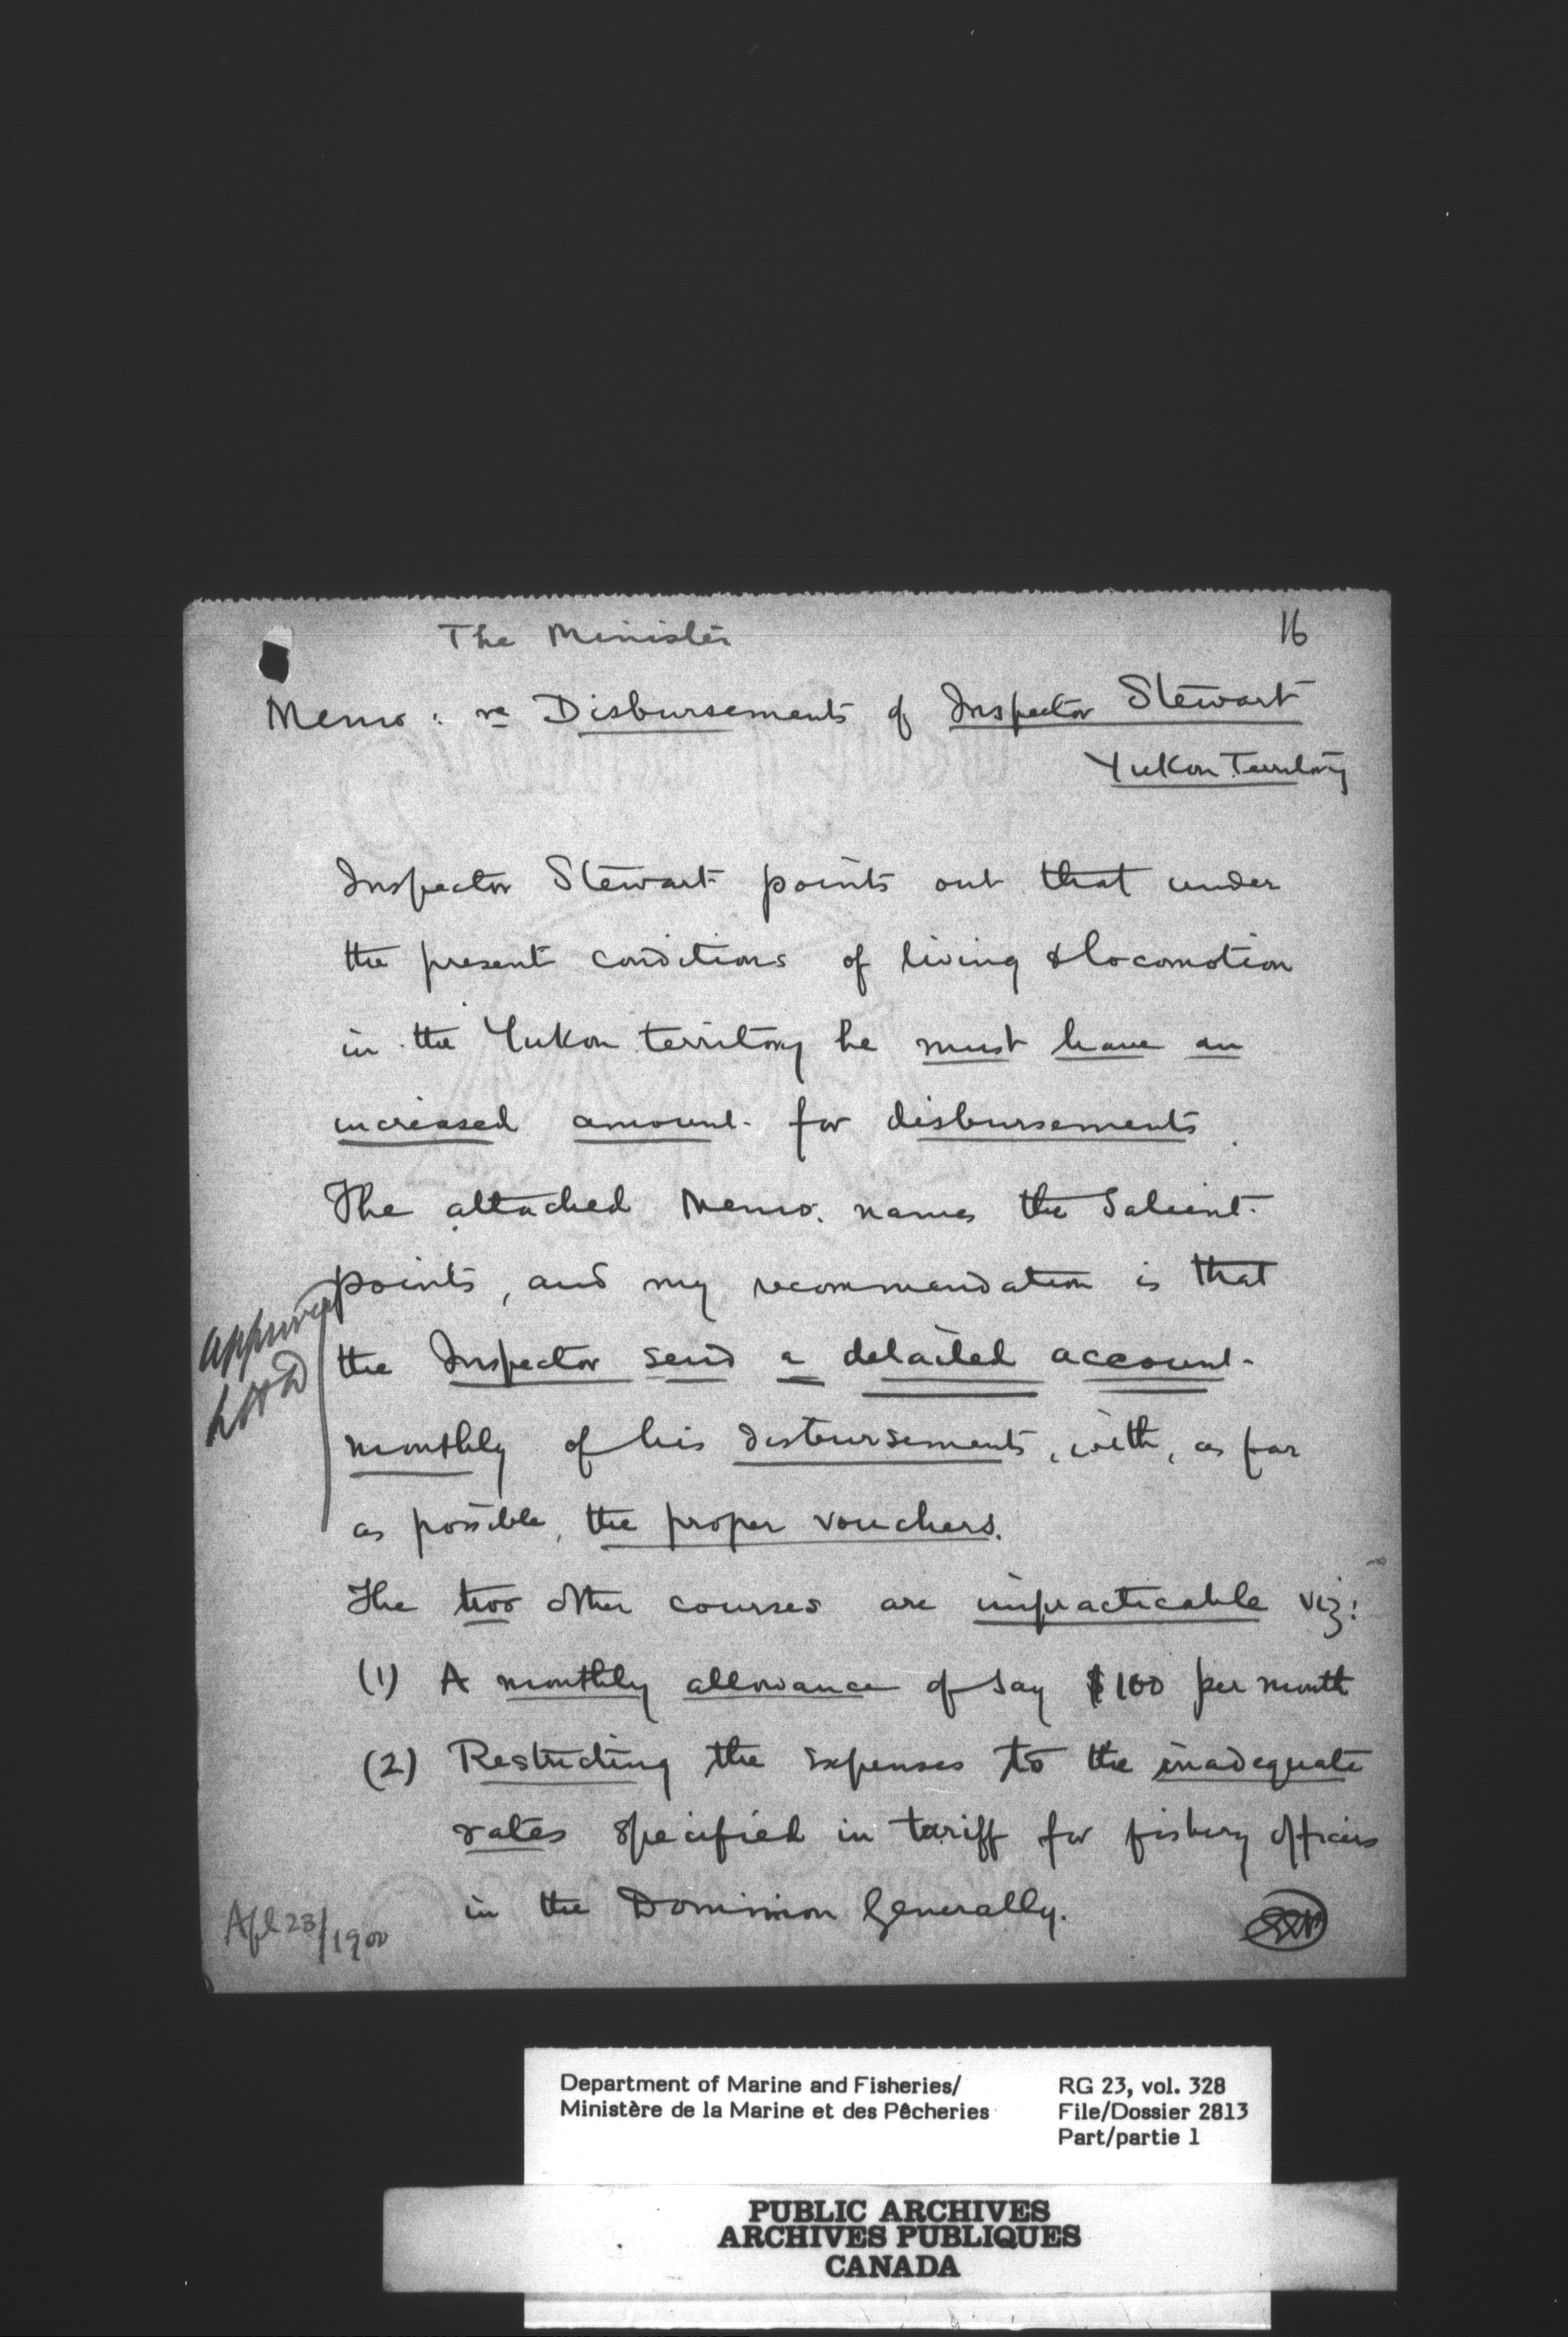 The Minister
16
Memo: re Disbursements of Inspector Stewart
Yukon Territory
Inspector Stewart points out that under
the present conditions of living & locomotion
in the Yukon territory he must have an
increased amount for disbursements.
The attached Memo. names the salient
points, and my recommendation is that
the Inspector send a detailed account
monthly of his disbursements, with, as far
as possible, the proper vouchers.
approved
The two other courses are impracticable viz:
(1) A monthly allowance of say $100 per month
(2) Restricting the expenses to the inadequate
rates specified in tariff for fishery officers
in the Dominion Generally.
Apl 23/1900
Department of Marine and Fisheries/
Ministère de la Marine et des Pêcheries
RG 23, vol. 328
File/Dossier 2813
Part/partie 1
PUBLIC ARCHIVES
ARCHIVES PUBLIQUES
CANADA